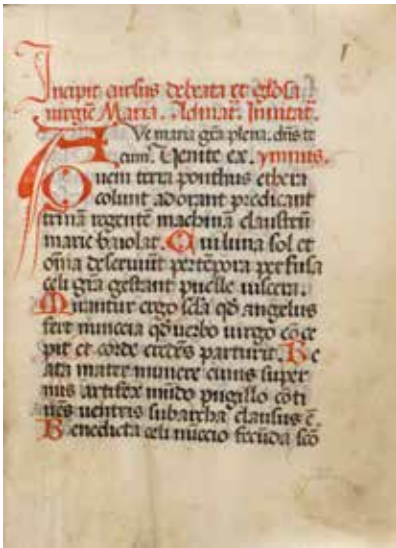 Incipit cursus debeata et glõsa
uirgiẽ Maria. Admat̃. Inuitat̃.
AVe maria gr̃a plena. dñs te
cum. Venite ex. ymnus.
Quem terra ponthus ethera
colunt adorant predicant
trinã regentẽ machinã claustrũ
marie baiolat. Cui luna sol et
oĩa deseruiũt per tẽpora perfusa
celi gr̃a gestant puelle uiscera.
Mirantur ergo scl̃a qð angelus
fert muncia qð uerbo uirgo cõce
pit et corde credẽs parturit. Be
ata mater munere cuius super
nus artifex mũdo pugillo cõti
nẽs uentris subarcha clausus ẽ.
Benedicta celi nũccio fecũda scõ